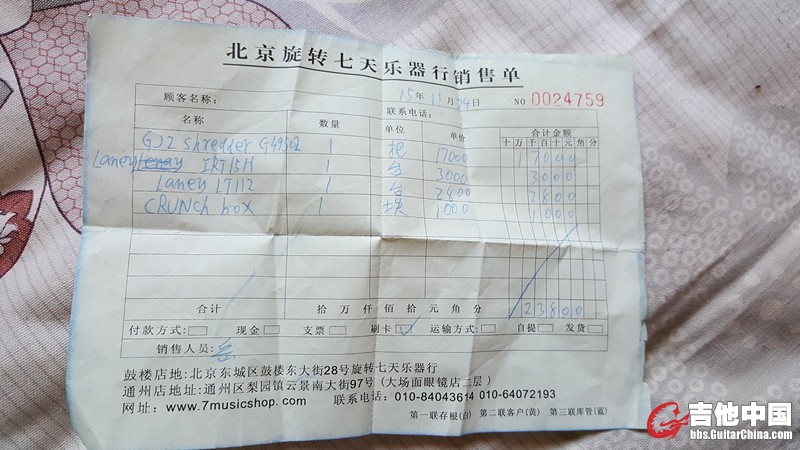 北京旋转七天乐器行销售单
15年11月24日 NO 0024759
顾客名称： 联系电话：
名称 数量 单位 单价 合计金额
十万千百十元角分
GJ2 Shredder 1 把 17000 17000
Laney IRT15H 1 台 3000 3000
Laney LT112 1 台 2800 2800
CRUNCh box 1 块 1000 1000
合计 拾 万 仟 佰 拾 元 角 分 23800
付款方式： 现金 支票 刷卡 ✓ 运输方式： 自提 发货
销售人员： 岳
鼓楼店地:北京东城区鼓楼东大街28号旋转七天乐器行
通州店地址:通州区梨园镇云景南大街97号(大场面眼镜店二层)
网址：www.7musicshop.com 联系电话：010-84043614 010-64072193
第一联存根(白) 第二联客户(黄) 第三联库管(蓝)
吉他中国
bbs.GuitarChina.com